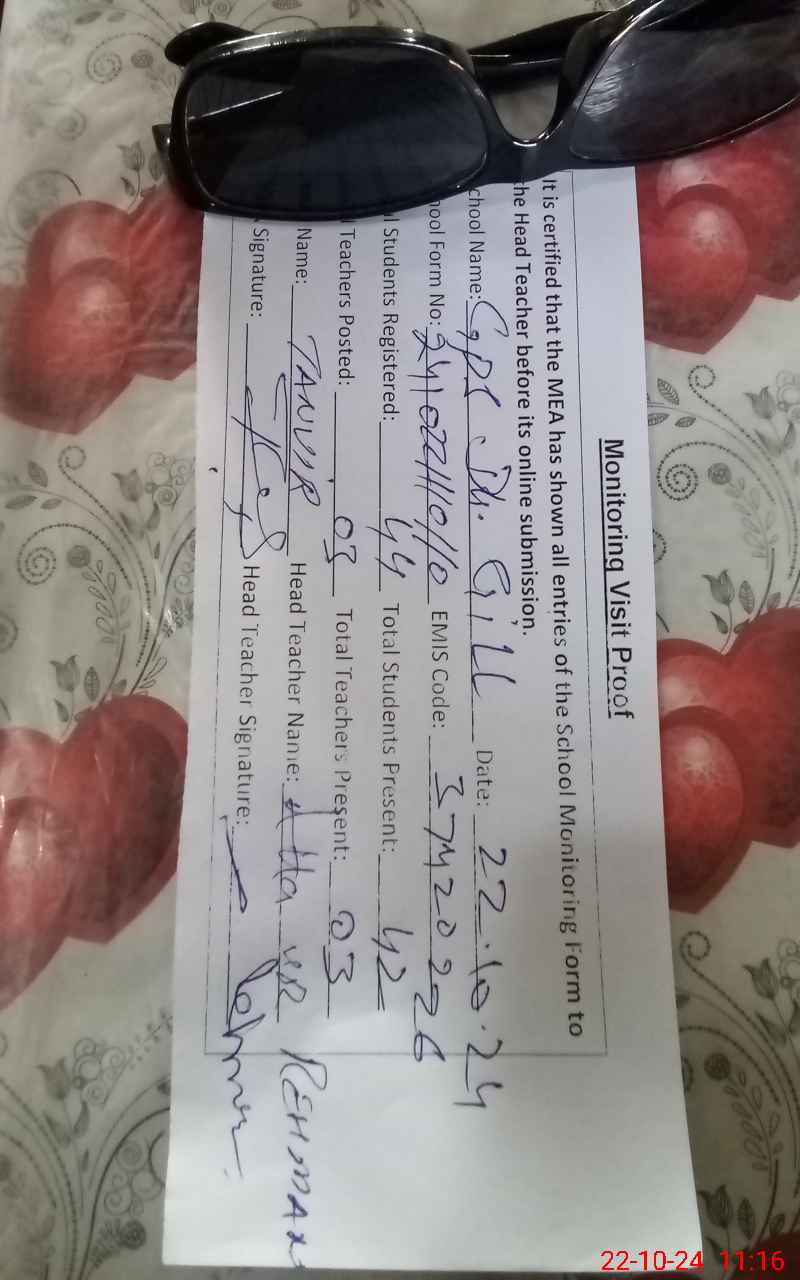 Monitoring Visit Proof
It is certified that the MEA has shown all entries of the School Monitoring Form to
the Head Teacher before its online submission.
chool Name: GPS Dh. Gill Date: 22.10.24
hool Form No: EMIS Code: 37420226
l Students Registered: 44 Total Students Present: 42
l Teachers Posted: 03 Total Teachers Present: 03
Name: TANVIR Head Teacher Name: Atta UR REHMAN
Signature: Head Teacher Signature:
22-10-24 11:16